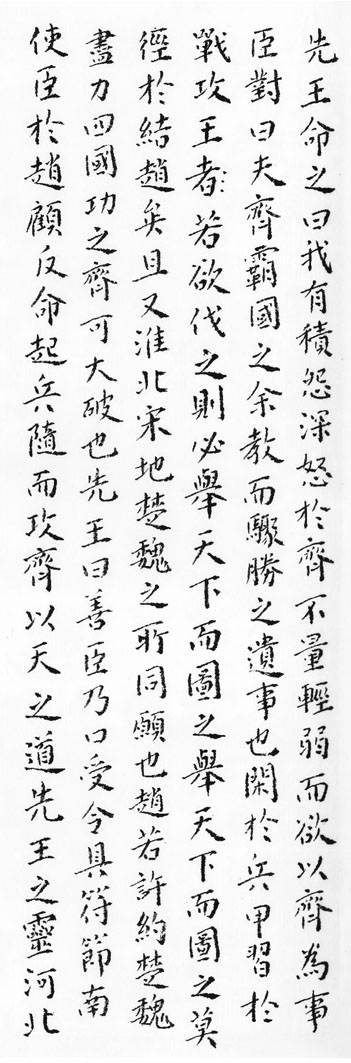 先王命之曰我有積怨深怒於齊不量輕弱而欲以齊為事
臣對曰夫齊霸國之余教而驟勝之遺事也閑於兵甲習於
戰攻王者若欲伐之則必舉天下而圖之舉天下而圖之莫
徑於結趙矣且又淮北宋地楚魏之所同願也趙若許約楚魏
盡力四國功之齊可大破也先王曰善臣乃口受令具符節南
使臣於趙顧反命起兵隨而攻齊以天之道先王之靈河北